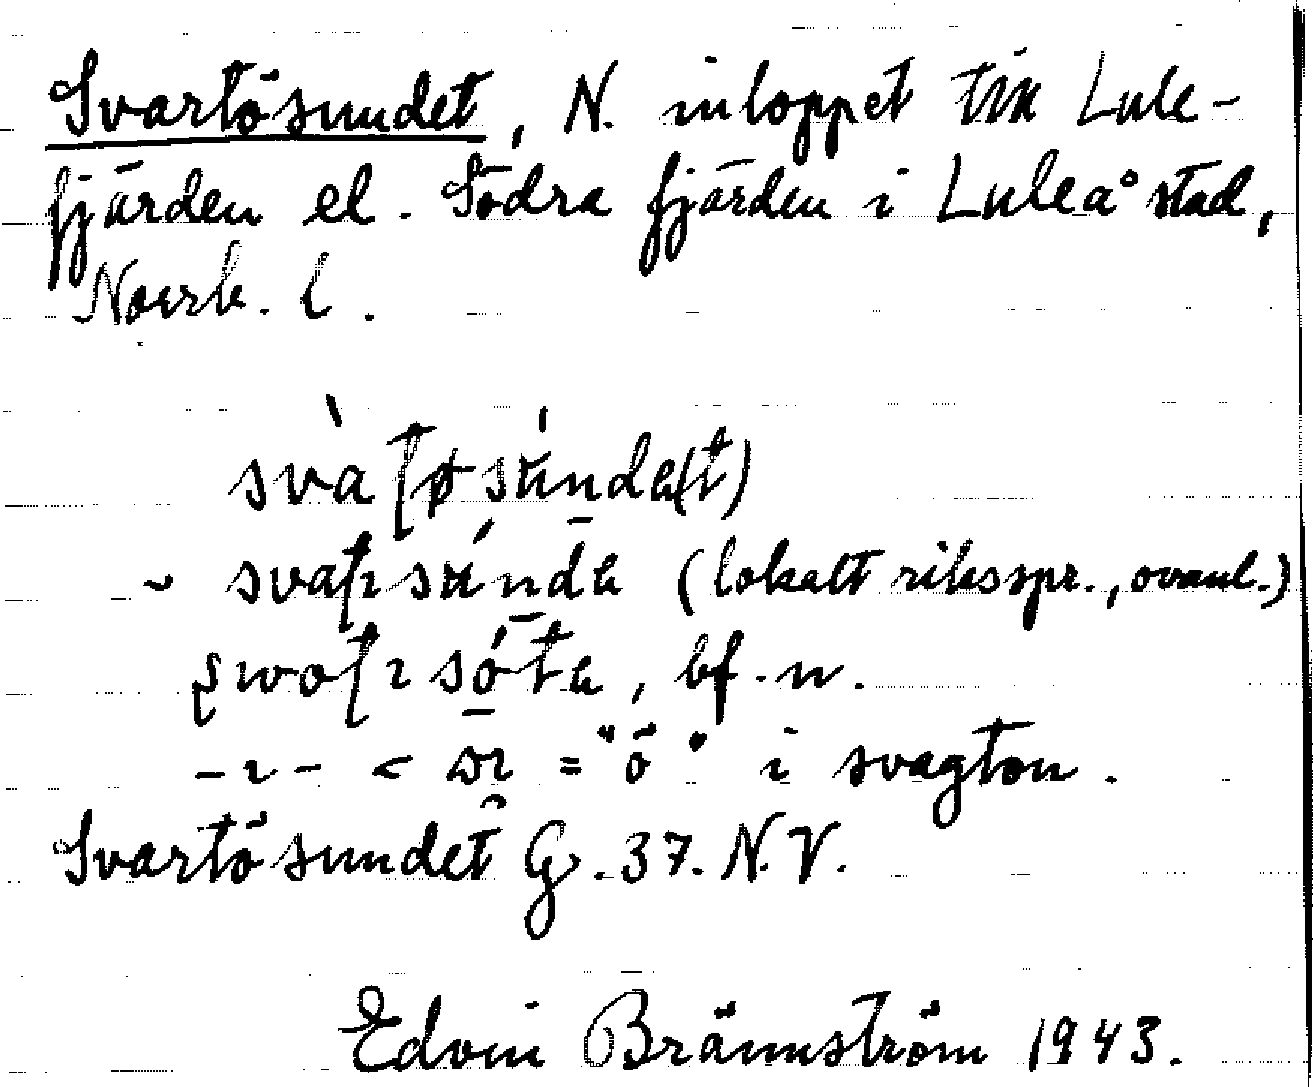 Svartösundet, N. inloppet till Lule-
fjärden el. Södra fjärden i Luleå stad,
Norrb. l.
(lokalt riksspr., ovanl.)
, bf. n.
"ö" i svagton.
Svartösundet G. 37. N.V.
Edvin Brännström 1943.